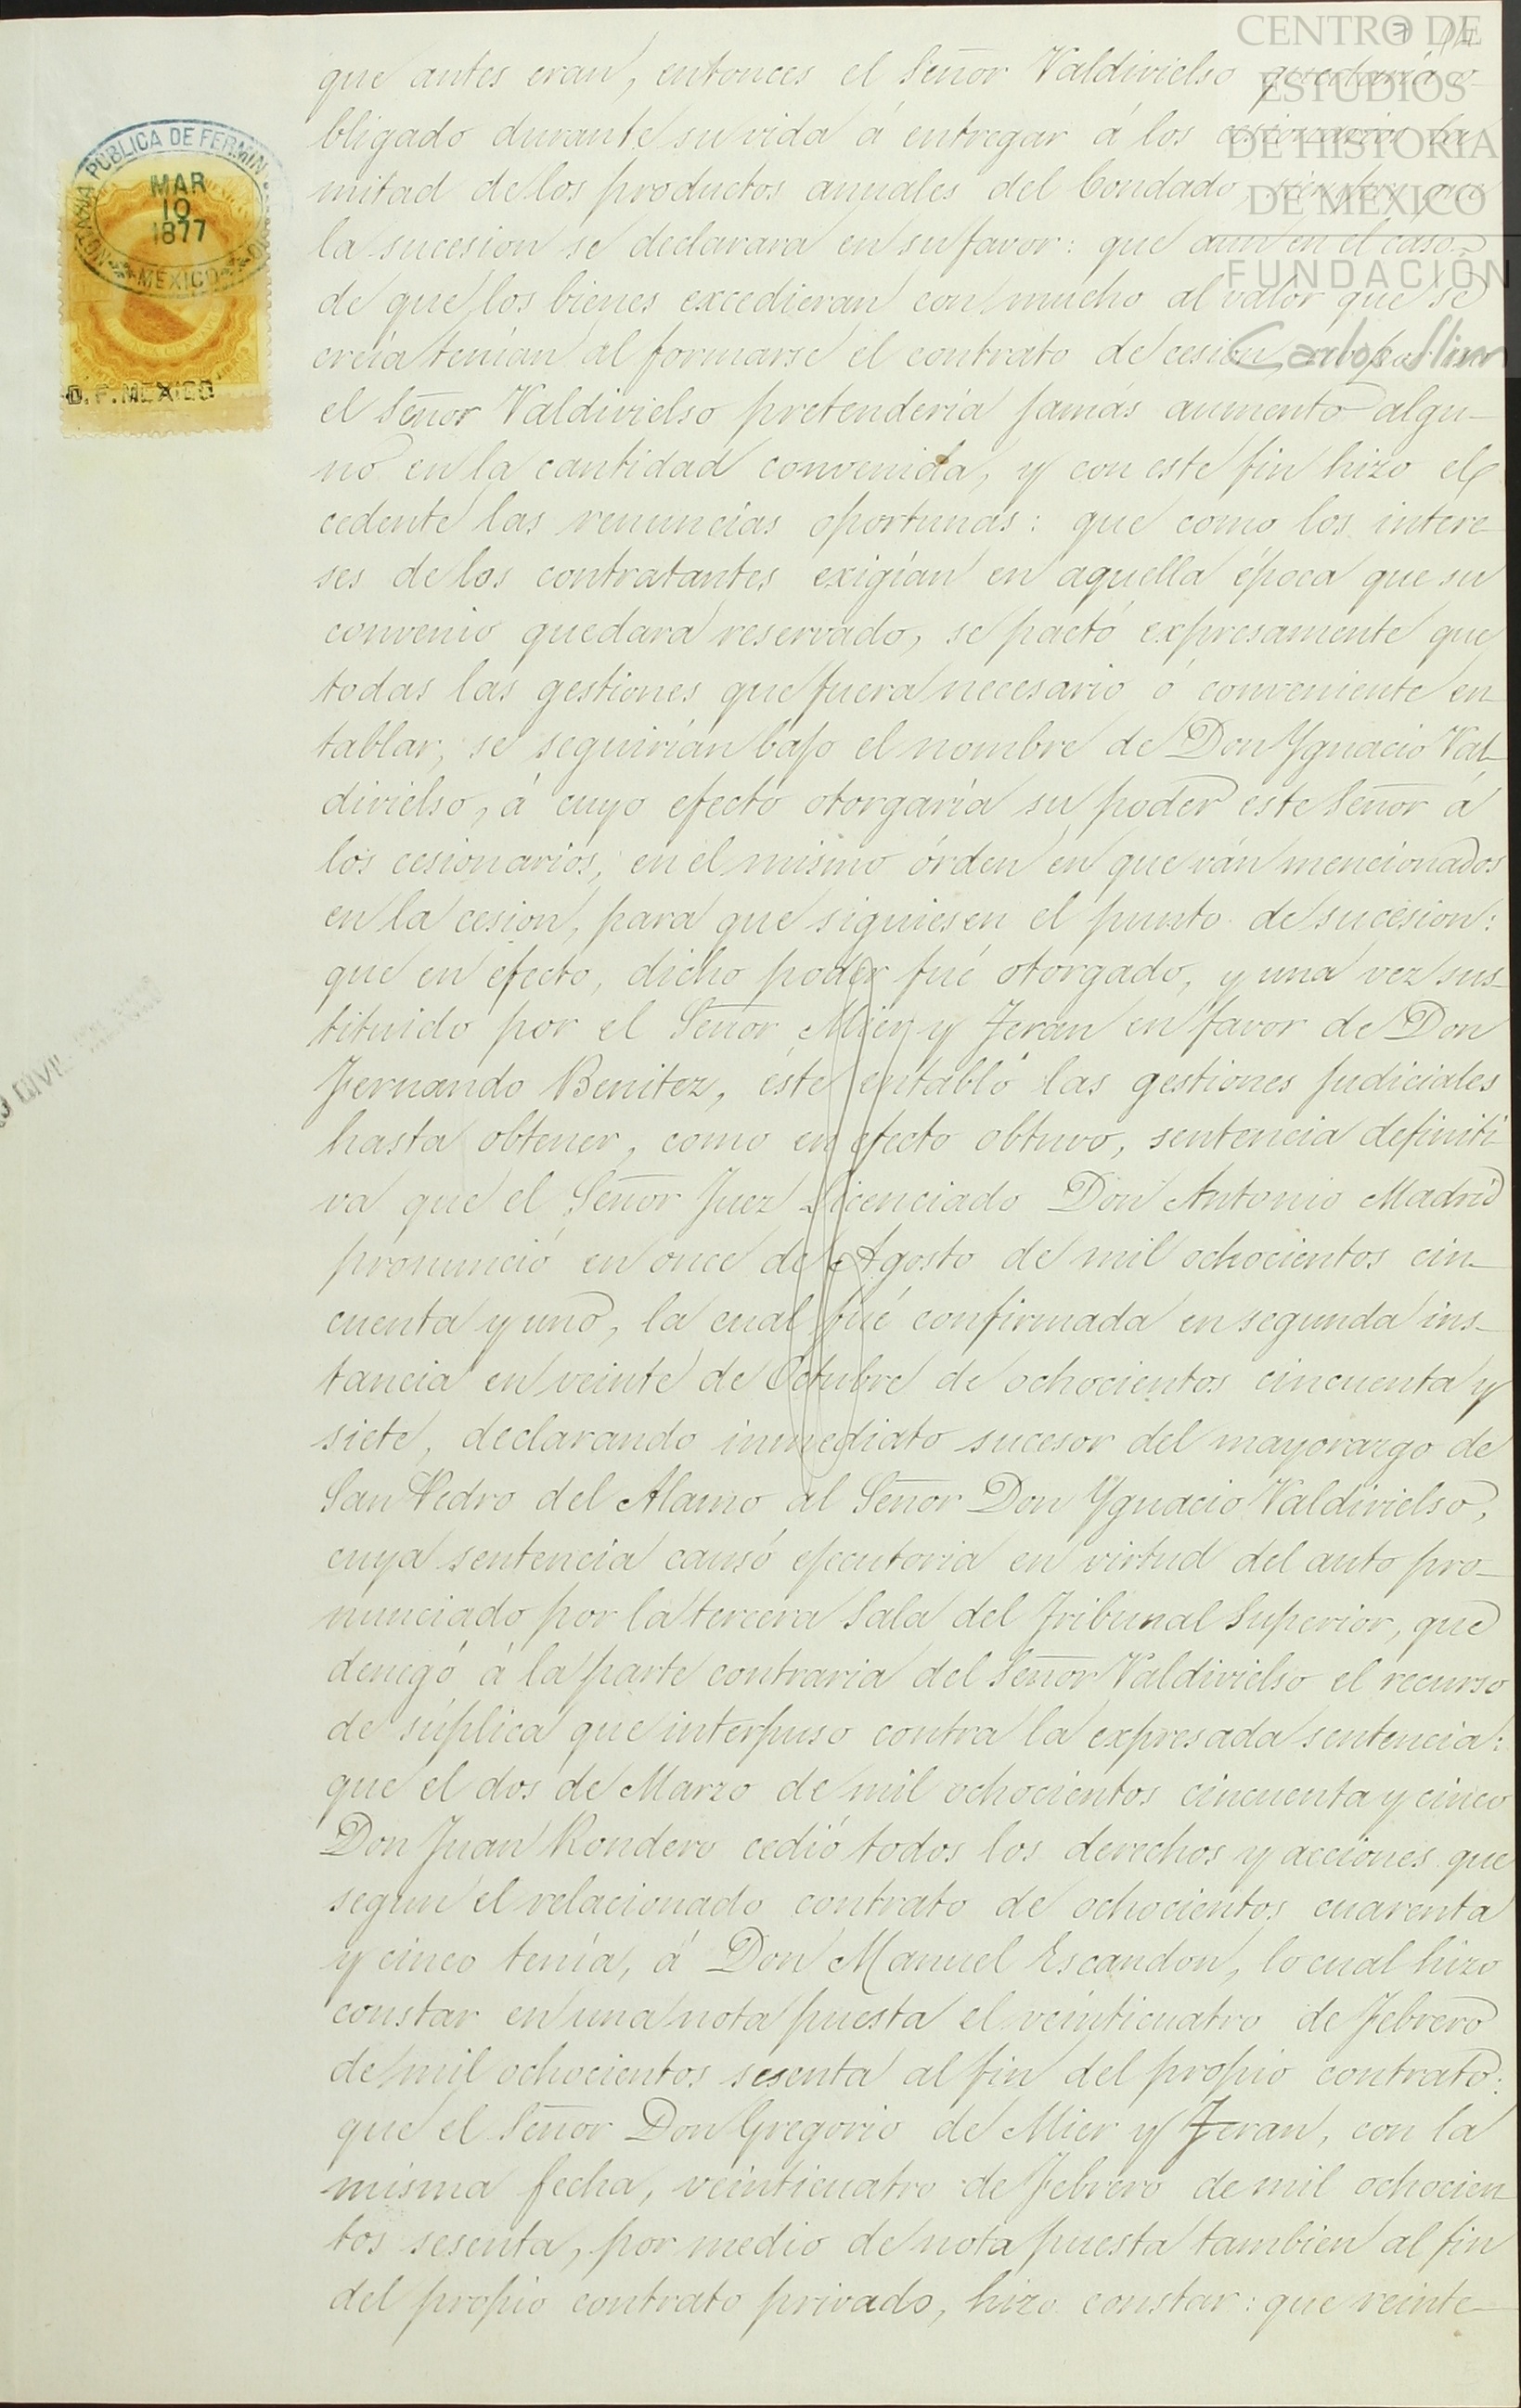 CENTRO DE
ESTUDIOS
DE HISTORIA
DE MEXICO
FUNDACIÓN
Carlos Slim
NOTARIA PUBLICA DE FERMIN
MAR
10
1877
MEXICO
D. F. MEXICO
que antes eran, entonces el Señor Valdivielso quedaria o-
bligado durante su vida á entregar á los cesionarios la
mitad de los productos anuales del Condado, siempre que
la sucesion se declarara en su favor: que aun en el caso
de que los bienes excedieran con mucho al valor que se
creia tenian al formarse el contrato de cesion,
el Señor Valdivielso pretenderia jamás aumento algu-
no en la cantidad convenida, y con este fin hizo el
cedente las renuncias oportunas: que como los intere
ses de los contratantes exigían en aquella época que su
convenio quedara reservado, se pactó expresamente que
todas las gestiones que fuera necesario ó conveniente en
tablar, se seguirían bajo el nombre de Don Ygnacio Val-
divielso, á cuyo efecto otorgaría su poder este Señor á
los cesionarios, en el mismo órden en que ván mencionados
en la cesion, para que siguiesen el punto de sucesion:
que en efecto, dicho poder fué otorgado, y una vez sus-
tituido por el Señor Mier y Teran en favor de Don
Fernando Benitez, éste entabló las gestiones judiciales
hasta obtener, como en efecto obtuvo, sentencia definiti
va que el Señor Juez Licenciado Don Antonio Madrid
pronunció en once de Agosto de mil ochocientos cin-
cuenta y uno, la cual fué confirmada en segunda ins-
tancia en veinte de Octubre de ochocientos cincuenta y
siete, declarando inmediato sucesor del mayorazgo de
San Pedro del Alamo al Señor Don Ygnacio Valdivielso,
cuya sentencia causó ejecutoria en virtud del auto pro-
nunciado por la tercera Sala del Tribunal Superior, que
denegó á la parte contraria del Señor Valdivielso el recurso
de súplica que interpuso contra la expresada sentencia:
que el dos de Marzo de mil ochocientos cincuenta y cinco
Don Juan Rondero cedió todos los derechos y acciones que
segun el relacionado contrato de ochocientos cuarenta
y cinco tenía, á Don Manuel Escandon, lo cual hizo
constar en una nota puesta el veinticuatro de Febrero
de mil ochocientos sesenta al fin del propio contrato:
que el Señor Don Gregorio de Mier y Teran, con la
misma fecha, veinticuatro de Febrero de mil ochocien
tos sesenta, por medio de nota puesta tambien al fin
del propio contrato privado, hizo constar: que veinte-